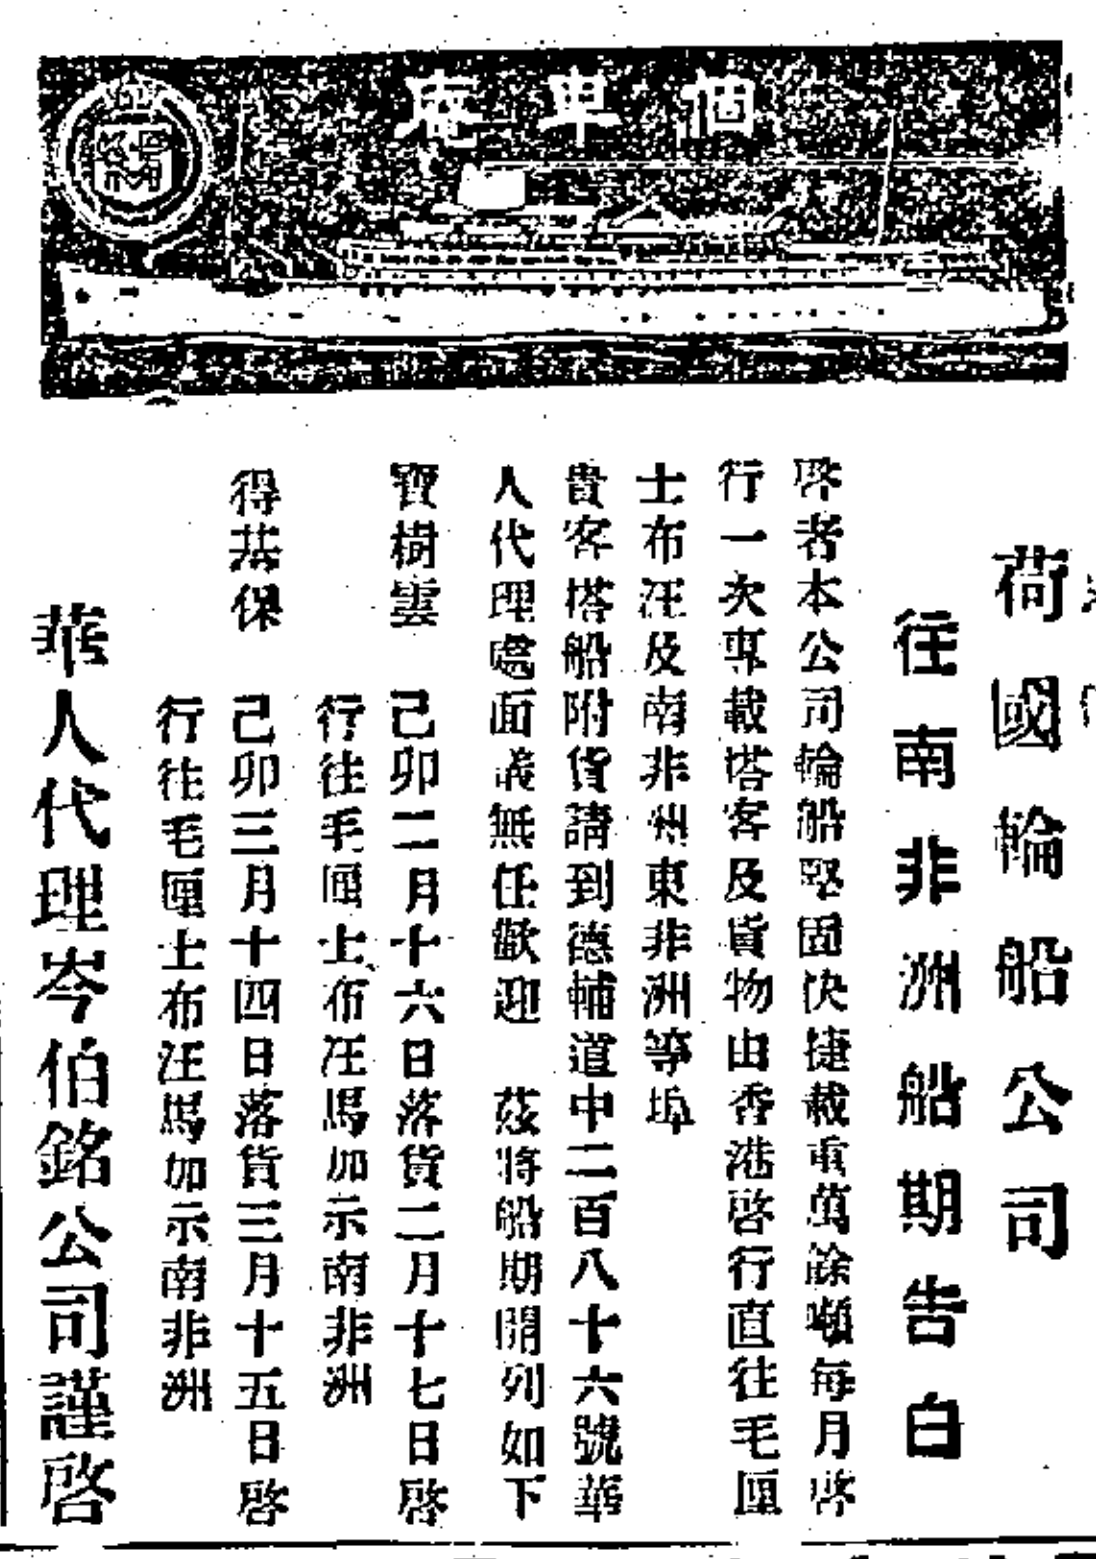 個卑庵
KPM
荷國輪船公司
往南非洲船期告白
啓者本公司輪船堅固快捷載重萬餘噸每月啓
行一次專載搭客及貨物由香港啓行直往毛厘
士布汪及南非州東非洲等埠
貴客搭船附貨請到德輔道中二百八十六號華
人代理處面議無任歡迎　茲將船期開列如下
寶樹雲　己卯二月十六日落貨二月十七日啓
行往毛厘士布汪馬加示南非洲
得基保　己卯三月十四日落貨三月十五日啓
行往毛厘士布汪馬加示南非洲
華人代理岑伯銘公司謹啓